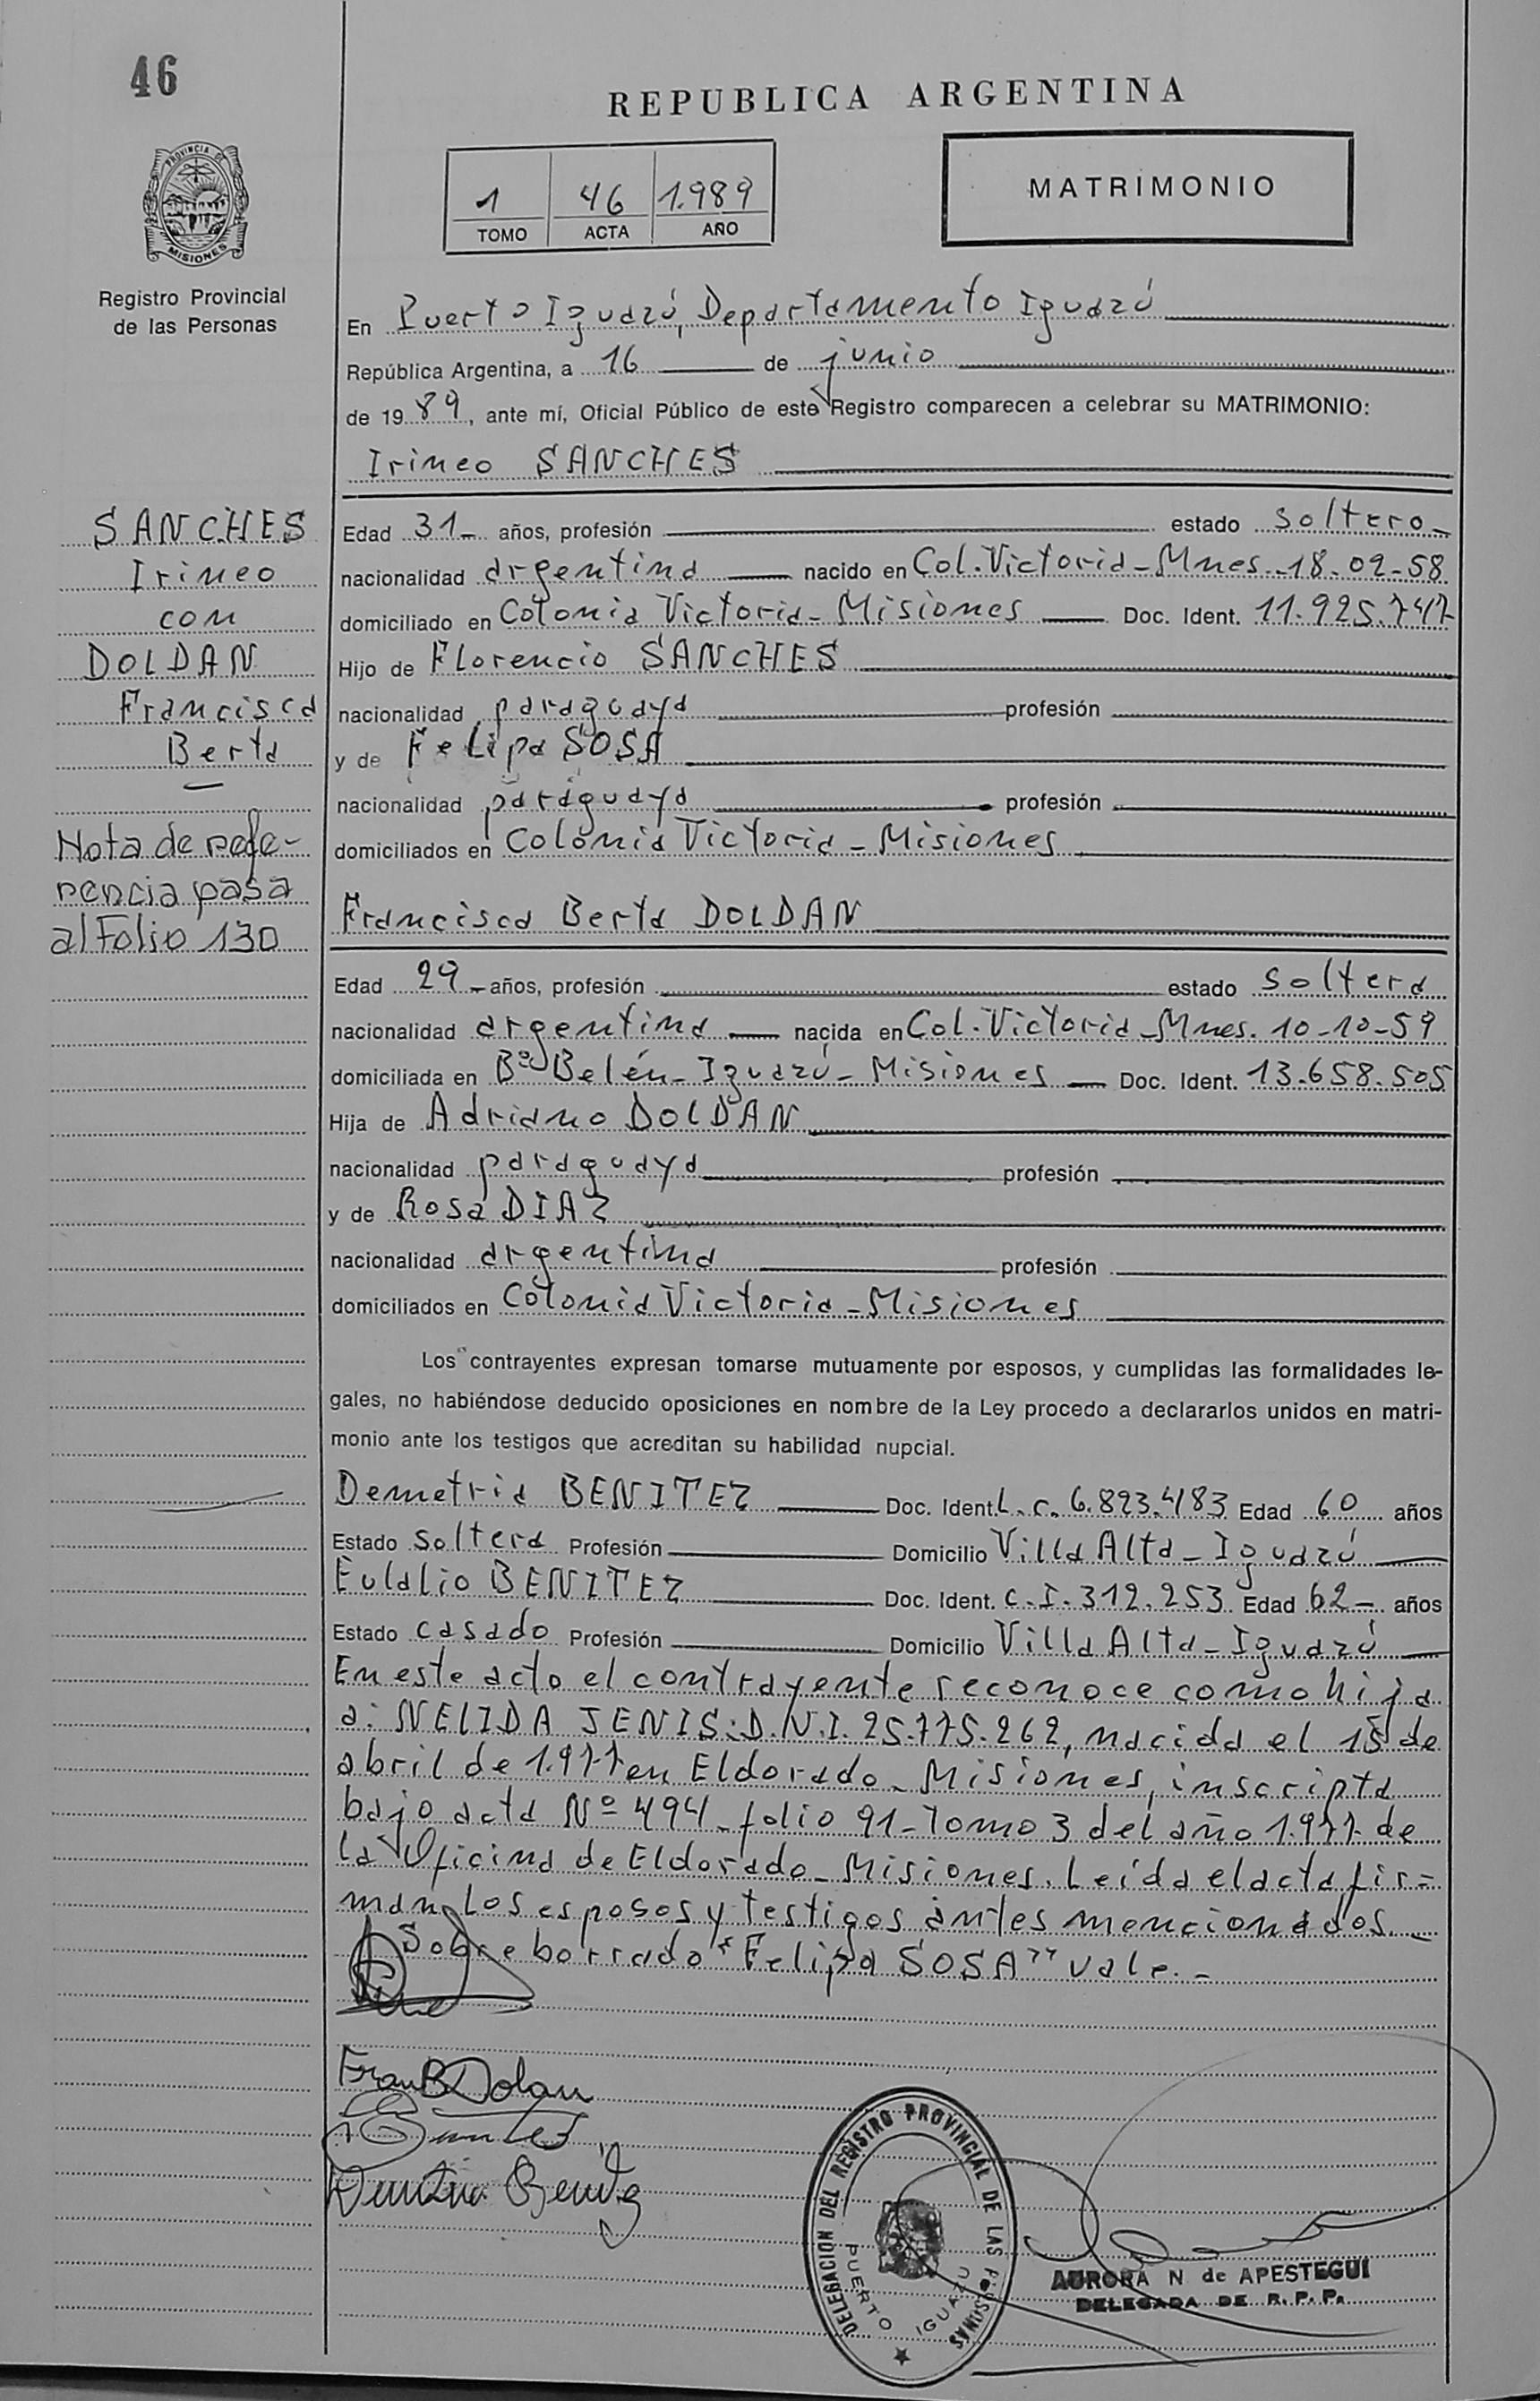 46
REPUBLICA ARGENTINA
PROVINCIA DE
MISIONES
1 46 1.989
TOMO ACTA AÑO
MATRIMONIO
Registro Provincial
de las Personas
En Puerto Iguazú, Departamento Iguazú
República Argentina, a 16 de junio
de 19 89, ante mí, Oficial Público de este Registro comparecen a celebrar su MATRIMONIO:
Irineo SANCHES
SANCHES
Irineo
con
DOLDAN
Francisca
Berta
Nota de refe-
rencia pasa
al Folio 130
Edad 31- años, profesión estado soltero-
nacionalidad argentina nacido en Col. Victoria - Mnes. - 18-02-58
domiciliado en Colonia Victoria - Misiones Doc. Ident. 11.925.747
Hijo de Florencio SANCHES
nacionalidad paraguaya profesión
y de Felipa SOSA
nacionalidad paraguaya profesión
domiciliados en Colonia Victoria - Misiones
Francisca Berta DOLDAN
Edad 29 - años, profesión estado soltera
nacionalidad argentina nacida en Col. Victoria - Mnes. 10-10-59
domiciliada en Bº Belén - Iguazú - Misiones Doc. Ident. 13.658.505
Hija de Adriano DOLDAN
nacionalidad paraguaya profesión
y de Rosa DIAZ
nacionalidad argentina profesión
domiciliados en Colonia Victoria - Misiones
Los contrayentes expresan tomarse mutuamente por esposos, y cumplidas las formalidades le-
gales, no habiéndose deducido oposiciones en nombre de la Ley procedo a declararlos unidos en matri-
monio ante los testigos que acreditan su habilidad nupcial.
Demetria BENITEZ Doc. Ident. L.C. 6.823.483 Edad 60 años
Estado soltera Profesión Domicilio Villa Alta - Iguazú
Eulalio BENITEZ Doc. Ident. C.I. 312.253 Edad 62 - años
Estado casado Profesión Domicilio Villa Alta - Iguazú
En este acto el contrayente reconoce como hija
a: NELIDA JENIS: D.N.I. 25.775.262, nacida el 15 de
abril de 1.977 en Eldorado - Misiones, inscripta
bajo acta Nº 494 - folio 91 - Tomo 3 del año 1.977 de
la Oficina de Eldorado - Misiones. Leída el acta, fir=
man, los esposos y testigos antes mencionados. -
Sobre borrado "Felipa SOSA" vale. -
Fran B Dolan
DELEGACION DEL REGISTRO PROVINCIAL DE LAS PERSONAS
PUERTO IGUAZU
AURORA N de APESTEGUI
DELEGADA DE R. P. P.